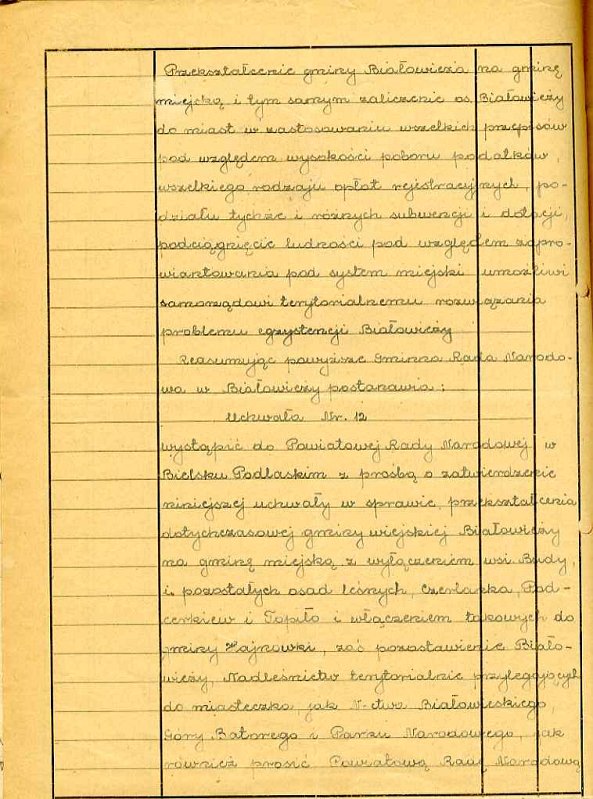 Przekształcenie gminy Białowieża na gminę
miejską i tym samym zaliczenie os. Białowieży
do miast w zastosowaniu wszelkich przepisów
pod względem wysokości poboru podatków,
wszelkiego rodzaju opłat rejestracyjnych, po-
działu tychże i różnych subwencji i dotacji,
podciągnięcie ludności pod względem zapro-
wiantowania pod system miejski umożliwi
samorządowi terytorialnemu rozwiązania
problemu egzystencji Białowieży
Reasumując powyższe Gminna Rada Narodo-
wa w Białowieży postanawia:
Uchwała Nr. 12
wystąpić do Powiatowej Rady Narodowej w
Bielsku Podlaskim z prośbą o zatwierdzenie
niniejszej uchwały w sprawie, przekształcenia
dotychczasowej gminy wiejskiej Białowieży
na gminę miejską z wyłączeniem wsi Budy,
i pozostałych osad leśnych, Czerlanka, Pod-
cerkiew i Topiło i włączeniem takowych do
gminy Hajnówki, zaś pozostawienie Biało-
wieży, Nadleśnictw terytorialnie przylegających
do miasteczka, jak N-ctwo Białowieskiego,
Góry Batorego i Parku Narodowego, jak
również prosić Powiatową Radę Narodową